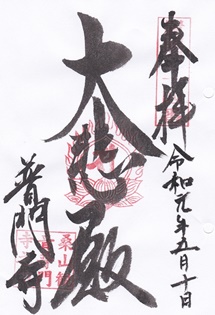 奉拝
令和元年五月十日
大悲殿
普門寺